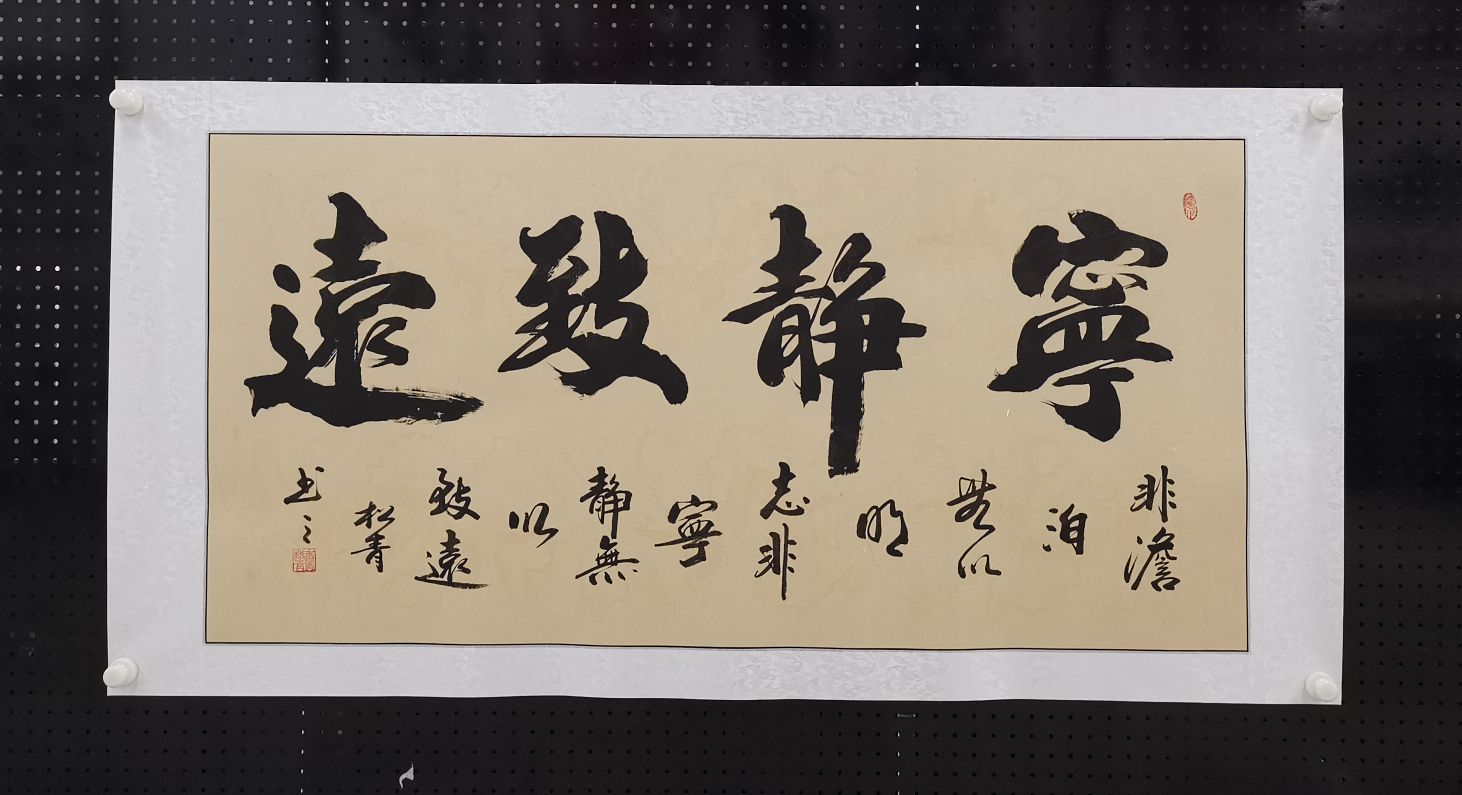 寧靜致遠
非澹
泊
無以
明
志非
寧
静無
以
致遠
松青
书之